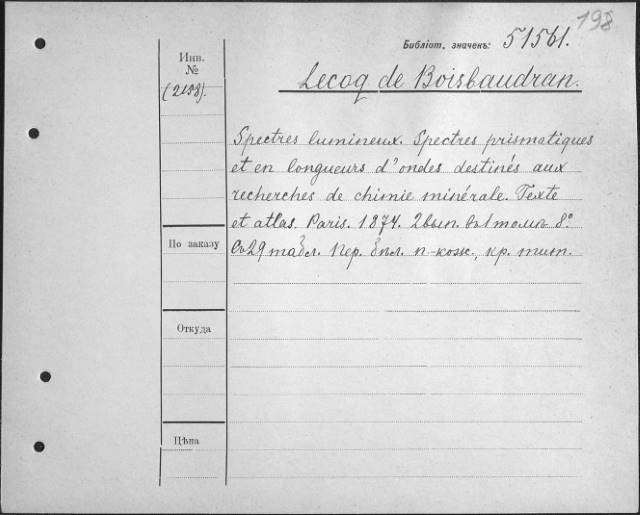 198
Библіот. значекъ: 51561.
Инв.
№
(2158).
Lecoq de Boisbaudran.
Spectres lumineux. Spectres prismatiques
et en longueurs d'ondes destinés aux
recherches de chimie minérale. Texte
et atlas. Paris. 1874. 2 вып. въ 1 томѣ 8º
Съ 29 табл. Пер. п-кож., кр. тит.
По заказу
Откуда
Цѣна